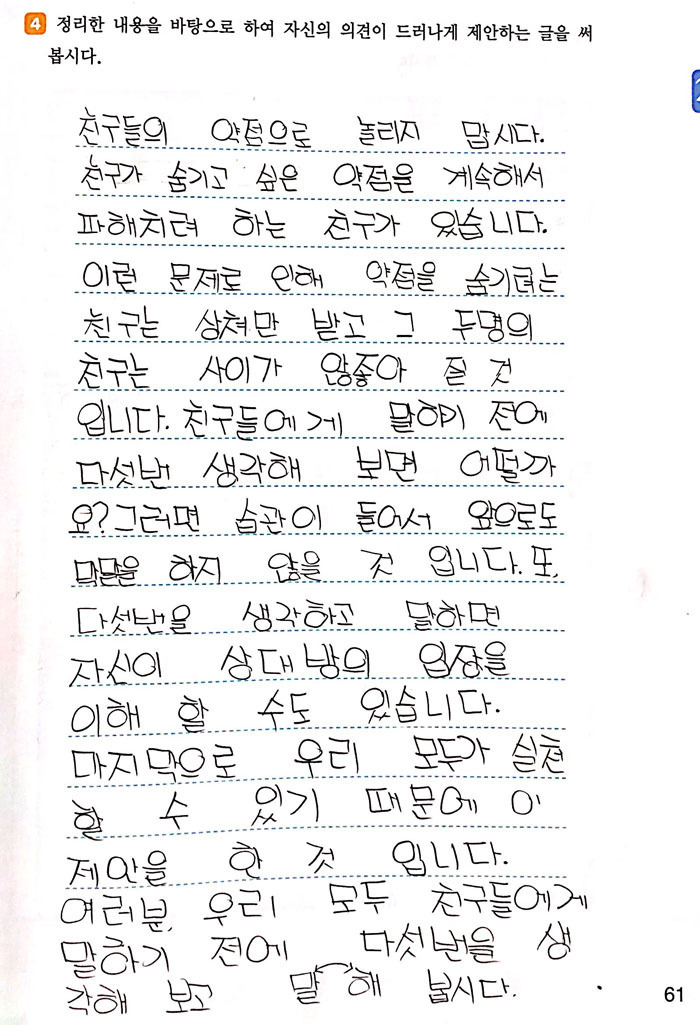 4 정리한 내용을 바탕으로 하여 자신의 의견이 드러나게 제안하는 글을 써
봅시다.
친구들의 약점으로 놀리지 맙시다.
친구가 숨기고 싶은 약점을 계속해서
파해치려 하는 친구가 있습니다.
이런 문제로 인해 약점을 숨기려는
친구는 상처만 받고 그 두명의
친구는 사이가 않좋아 질 것
입니다. 친구들에게 말하기 전에
다섯번 생각해 보면 어떨까
요? 그러면 습관이 들어서 앞으로도
막말을 하지 않을 것 입니다. 또,
다섯번을 생각하고 말하면
자신이 상대방의 입장을
이해 할 수도 있습니다.
마지막으로 우리 모두가 실천
할 수 있기 때문에 이
제안을 한 것 입니다.
여러분, 우리 모두 친구들에게
말하기 전에 다섯번을 생
각해 보고 말해 봅시다.
61